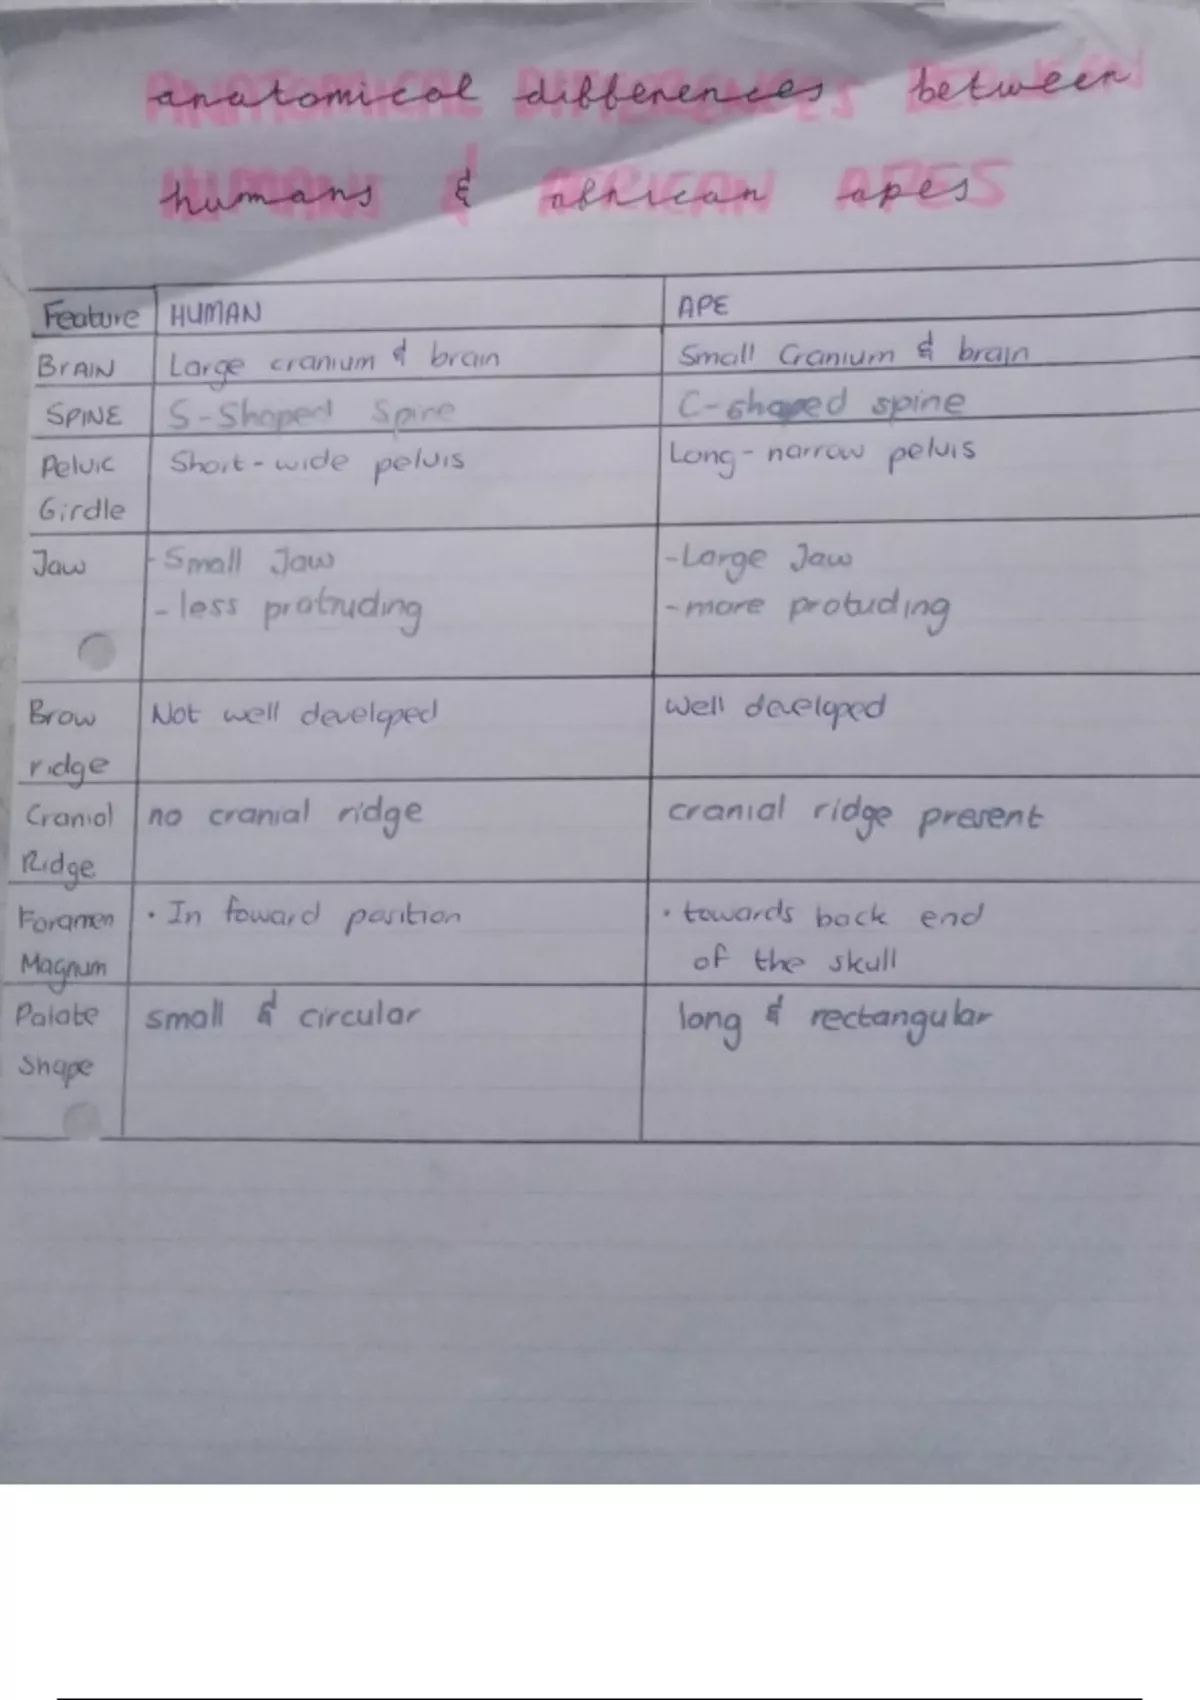 anatomical differences between
humans & african apes
Feature HUMAN APE
BRAIN Large cranium & brain Small Cranium & brain
SPINE S-Shaped Spine C-shaped spine
Pelvic Short-wide pelvis Long-narrow pelvis
Girdle
Jaw - Small Jaw -Large Jaw
- less protruding -more protuding
Brow Not well developed Well developed
ridge
Cranial no cranial ridge cranial ridge present
Ridge
Foramen • In foward position • towards back end
Magnum of the skull
Palate small & circular long & rectangular
Shape